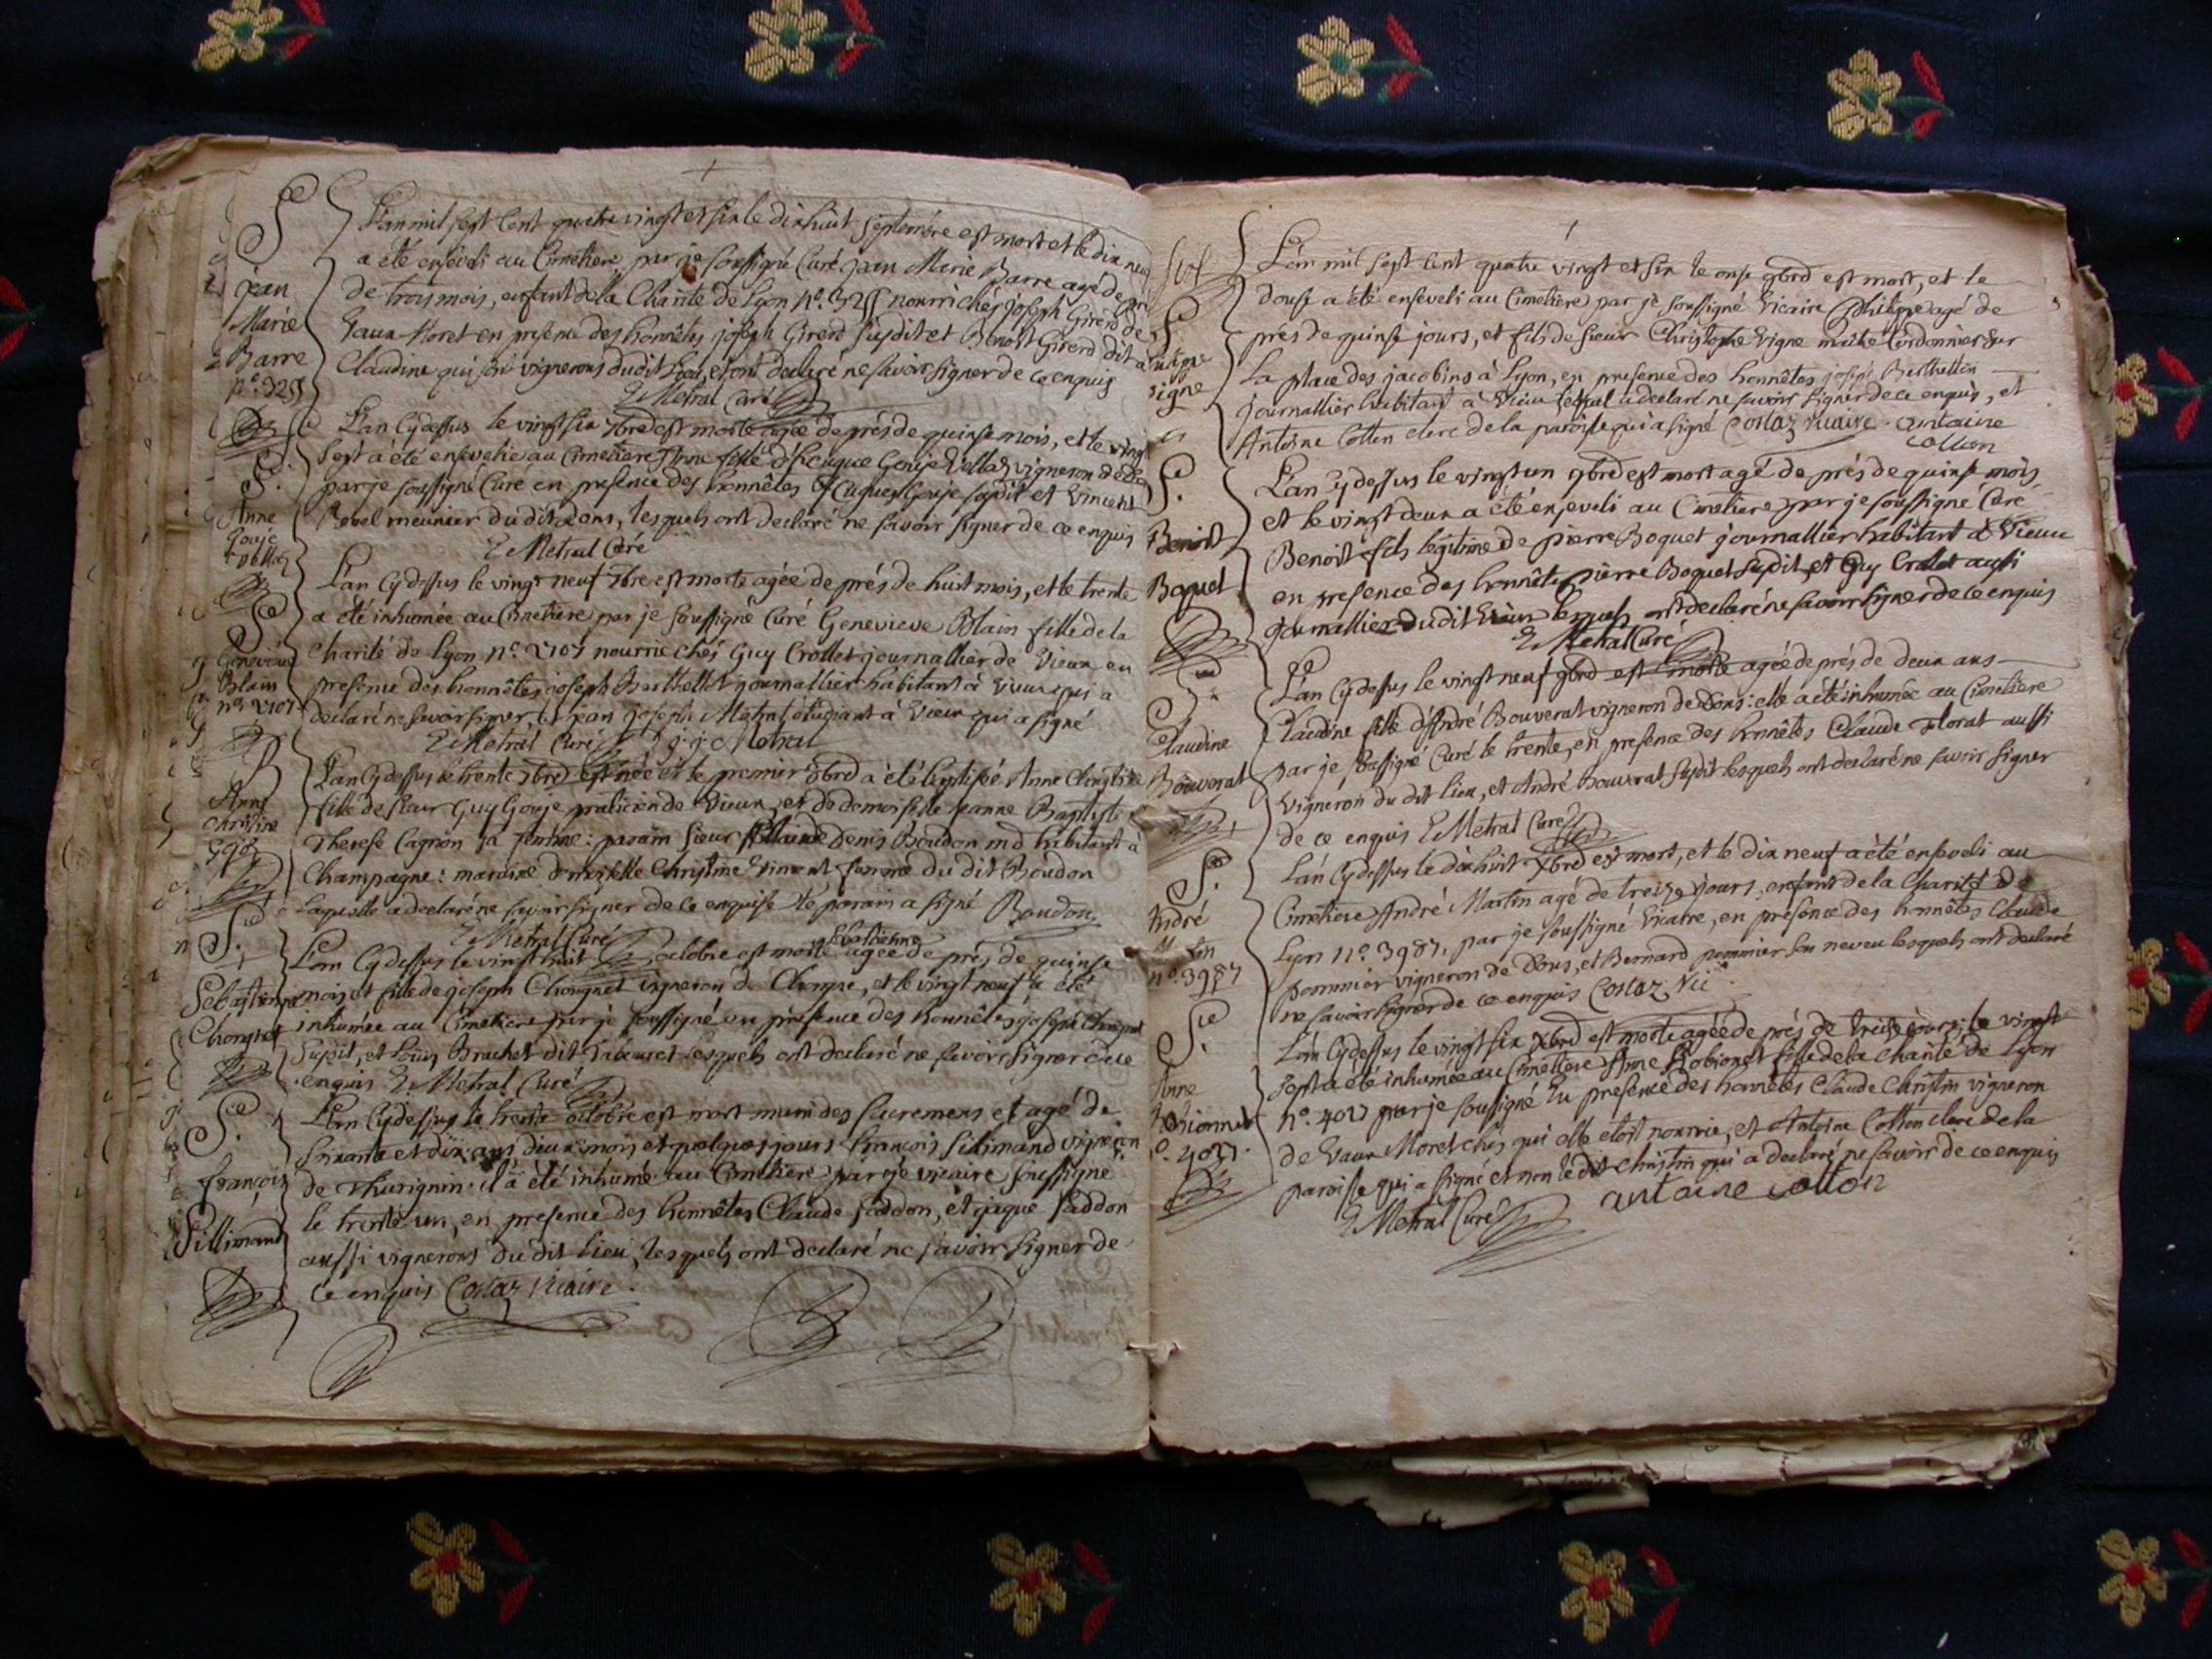 +
L'an mil sept cent quatre vingt et six le dix huit septembre est mort et le dix neuf
a été enseveli au Cimetiere par je soussigné Curé jean Marie Barre agé de près
de trois mois, enfant de la Charité de Lyon n°. 3255 nourri chés joseph Girerd de
Vaux Moret en presence des honnêtes joseph Girerd susdit et Benoit Girerd dit à
Claudine qui sont vignerons dudit lieu, et ont declaré ne savoir signer de ce enquis
Metral Curé
S.
jean
Marie
Barre
n°. 3255
L'an Cydessus le vingt six 7bre est morte agée de près de quinse mois, et le vingt
sept a été ensevelie au Cimetiere Anne fille de jacque Gouje Vellaz vigneron de Dons
par je soussigné Curé en presence des honnêtes jacque Gouje susdit et Vincent
Revel meunier du dit Dons, lesquels ont declaré ne savoir signer de ce enquis
Metral Curé
S.
Anne
Gouje
Vellaz
L'an Cydessus le vingt neuf 7bre est morte agée de près de huit mois, et le trente
a été inhumée au Cimetiere par je soussigné Curé Genevieve Blain fille de la
Charité de Lyon n°. 2107 nourrie chés Guy Crollet journallier de Vieux en
presence des honnêtes joseph Barthellot journallier habitant à Vieux qui a
declaré ne savoir signer, et jean joseph Metral étudiant à Vieux qui a signé
Metral Curé j. j. Metral
S.
Genevieve
Blain
n°. 2107
L'an Cydessus le trente 7bre est née et le premier 8bre a été baptisée Anne Christine
fille de sieur Guy Gouje praticien de Vieux, et de demoiselle jeanne Baptiste
Therese Cagnon sa femme : parain sieur Denis Boudon md habitant à
Champagne : maraine demoiselle Christine Vincent femme du dit Boudon
Laquelle a declaré ne savoir signer de ce enquise le parain a signé Boudon
Metral Curé
B
Anne
Christine
Goje
L'an Cydessus le vingt huit octobre est morte Sebastienne agée de près de quinse
mois et fille de joseph Chongnet vigneron de Chongne, et le vingt neuf a été
inhumée au Cimetiere par je soussigné en presence des honnêtes joseph Chongnet
susdit, et Louis Brachet dit Laburet lesquels ont declaré ne savoir signer de ce
enquis Metral Curé
S.
Sebastienne
Chongnet
L'an Cydessus le trente octobre est mort muni des sacremens et agé de
soixante et dix ans deux mois et quelques jours François Sillimand vigneron
de Thurignin. il a été inhumé au Cimetiere par je vicaire soussigné
le trente un, en presence des honnêtes Claude Faddon, et jaque Faddon
aussi vignerons du dit lieu, lesquels ont declaré ne savoir signer de
ce enquis Costaz Vicaire.
S.
François
Sillimand
+
L'an mil sept cent quatre vingt et six le onse 9bre est mort, et le
douse a été enseveli au Cimetiere par je soussigné Vicaire Philippe agé de
près de quinse jours, et fils de sieur Christophe Vigne maitre Cordonnier sur
La place des jacobins à Lyon, en presence des honnêtes joseph Berthellon
journallier habitant à Vieux lequel a declaré ne savoir signer de ce enquis, et
Antoine Cotton clerc de la paroisse qui a signé Costaz Vicaire. antoine
cotton
S.
Vigne
L'an Cydessus le vingt un 9bre est mort agé de près de quinse mois
et le vingt deux a été enseveli au Cimetiere par je soussigné Curé
Benoit fils legitime de pierre Boquet journallier habitant à Vieux
en presence des honnêtes pierre Boquet susdit, et Guy Crollet aussi
journallier du dit Vieux lesquels ont declaré ne savoir signer de ce enquis
Metral Curé
S.
Benoit
Boquet
L'an Cydessus le vingt neuf 9bre est morte agée de près de deux ans
Claudine fille d'André Bouverat vigneron de Dons : elle a été inhumée au Cimetiere
par je soussigné Curé le trente, en presence des honnêtes Claude Florat aussi
vigneron du dit lieu, et André Bouverat susdit lesquels ont declaré ne savoir signer
de ce enquis Metral Curé
S.
Claudine
Bouverat
L'an Cydessus le dix huit Xbre est mort, et le dix neuf a été enseveli au
Cimetiere André Martin agé de treize jours, enfant de la Charité de
Lyon n°. 3987. par je soussigné Vicaire, en presence des honnêtes Claude
pommier vigneron de Dons, et Bernard pommier son neveu lesquels ont declaré
ne savoir signer de ce enquis Costaz Vic
S.
André
n°. 3987
L'an Cydessus le vingt six Xbre est morte agée de près de treize jours, le vingt
sept a été inhumée au Cimetiere Anne Robionet fille de la charité de Lyon
n°. 4027 par je soussigné En presence des honnêtes Claude Christin vigneron
de Vaux Moret chés qui elle etoit nourrie, et Antoine Cotton clerc de la
paroisse qui a signé et non le dit Christin qui a declaré ne savoir de ce enquis
Metral Curé antoine cotton
S.
Anne